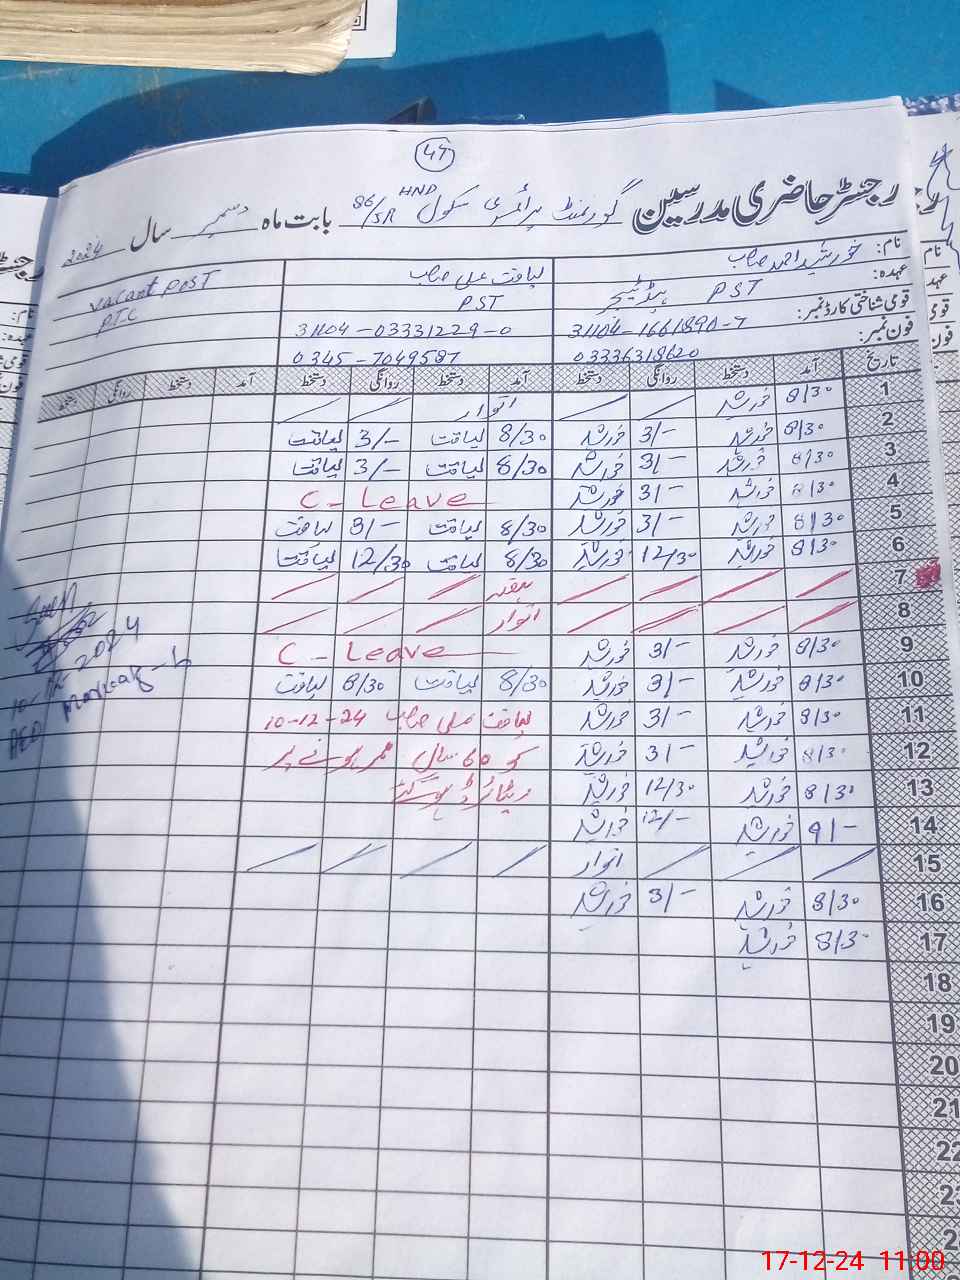 47
رجسٹر حاضری مدرسین گورنمنٹ پرائمری سکول HND 86/5R بابت ماہ دسمبر سال 2024
نام: خورشید احمد صاحب لیاقت علی صاحب vacant post
عہدہ: PST ہیڈ ٹیچر PST PTC
قومی شناختی کارڈ نمبر: 31104-1661890-7 31104-03331229-0
فون نمبر: 03336318620 0345-7049587
تاریخ آمد دستخط روانگی دستخط آمد دستخط روانگی دستخط آمد دستخط روانگی دستخط
1 8/30 خورشید اتوار
2 8/30 خورشید 3/- خورشید 8/30 لیاقت 3/- لیاقت
3 8/30 خورشید 3/- خورشید 8/30 لیاقت 3/- لیاقت
4 8/30 خورشید 3/- خورشید C-Leave
5 8/30 خورشید 3/- خورشید 8/30 لیاقت 3/- لیاقت
6 8/30 خورشید 12/30 خورشید 8/30 لیاقت 12/30 لیاقت
7 ہفتہ
8 اتوار
9 8/30 خورشید 3/- خورشید C-Leave
10 8/30 خورشید 3/- خورشید 8/30 لیاقت 8/30 لیاقت
11 8/30 خورشید 3/- خورشید لیاقت علی صاحب 10-12-24
12 8/30 خورشید 3/- خورشید کو 60 سال عمر ہونے پر
13 8/30 خورشید 12/30 خورشید ریٹائرڈ ہو گئے
14 9/- خورشید 12/- خورشید
15 اتوار
16 8/30 خورشید 3/- خورشید
17 8/30 خورشید
18
19
20
21
22
23
2024
17-12-24 11:00